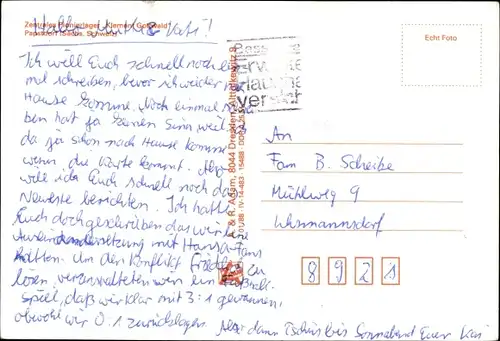 Zentrales Pionierlager "Klement Gottwald"
Papstdorf (Sächs. Schweiz)
Echt Foto
Ich will Euch schnell noch ein-
mal schreiben, bevor ich wieder nach
Hause komme. Noch einmal
ben hat ja keinen Sinn weil
da ja schon nach Hause komme
wenn die Karte kommt. Also
will ich Euch schnell noch das
Neueste berichten. Ich hatte
Euch doch geschrieben das wir eine
Auseinandersetzung mit
hatten. Um den Konflikt friedlich zu
lösen, veranstalteten wir ein Fußball-
spiel, daß wir klar mit 3:1 gewannen,
obwohl wir 0:1 zurücklagen. Also dann Tschüs bis Sonnabend Euer Kai
& R. Adam, 8044 Dresden, Altträkewitz 8
01/88 · IV-14-483 · 15488
An
Fam B. Scheibe
Mühlweg 9
Uhsmannsdorf
8 9 2 1